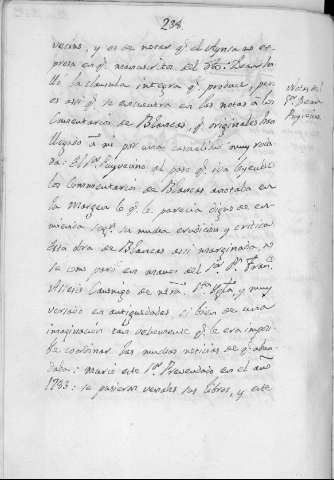 238.
vecino, y es de notar q.e el Aynsa no es-
presa en q.e manuscrito del dho: Dean ha-
lló la clausula integra q.e produce, pero
es assi q.e se encuentra en las notas a los
Comentarios de Blancas, q.e originales han
llegado à mi por una casualidad muy rara
da: el S.or Puyvecino al paso q.e iva leyendo
los Commentarios de Blancas anotaba en
la margen lo q.e le parecia digno de en-
mienda seg.n su mucha erudicion y critica
esta obra de Blancas assi marginada, no
se como paró en manos del S.or D.n Fran.co
Canonigo de nrã. S.ta Ygla, y muy
versado en antiguedades si bien de una
imaginacion tan vehemente q.e le era imposi-
ble coordinar las muchas noticias de q.e abun-
daba: murió este S.or Prevendado en el año
1733: se pusieron venales sus libros, y este
Notas del
S.or Dean
Puyvecino